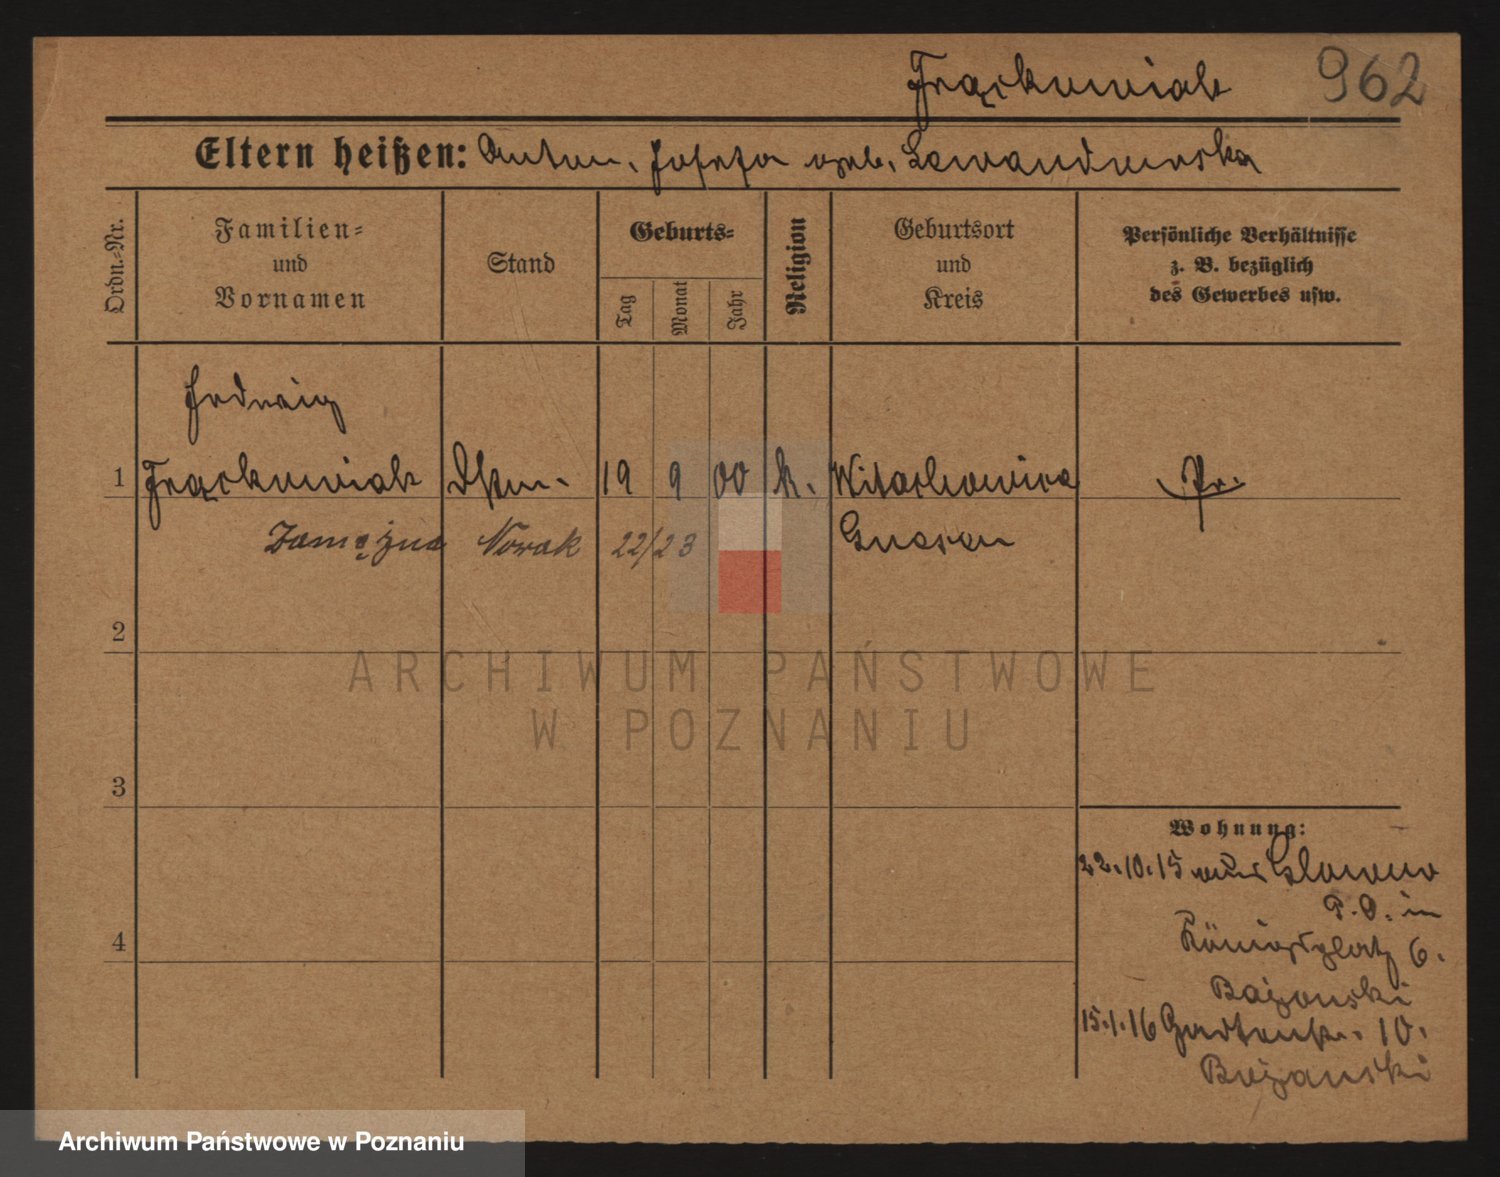 Frąckowiak 962
Eltern heißen: Anton, Josefa geb. Lewandowska
Ordn.-Nr.
Familien-
und
Vornamen
Stand
Geburts-
Tag
Monat
Jahr
Religion
Geburtsort
und
Kreis
Persönliche Verhältnisse
z. B. bezüglich
des Gewerbes usw.
Hedwig
1 Frąckowiak 19 9 00 k. Witachowice Pr.
Zamężna Nowak 22/23 Gnesen
2
ARCHIWUM PAŃSTWOWE
W POZNANIU
3
Wohnung:
22.10.15 aus Glowno
P.O. in
4
Königsplatz 6.
Bażanski
15.1.16 Gartenstr. 10.
Bażanski
Archiwum Państwowe w Poznaniu